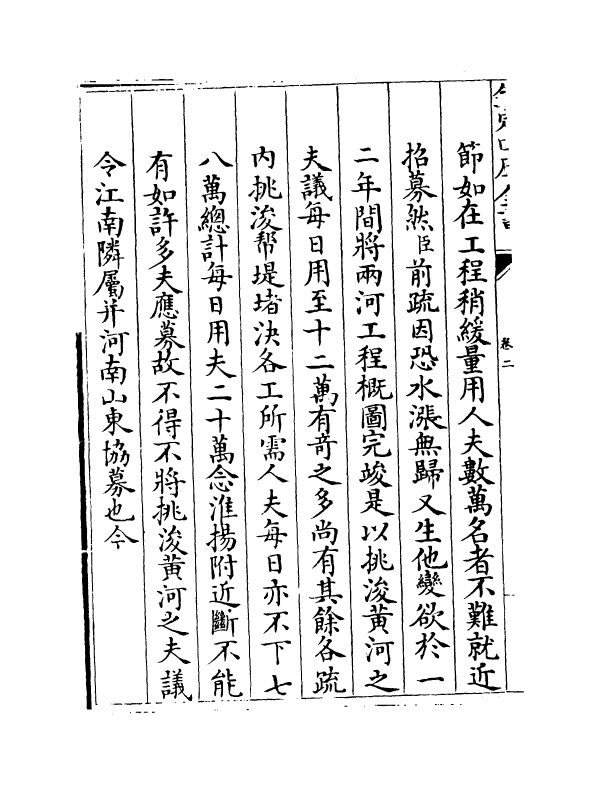 節如在工程稍緩量用人夫數萬名者不難就近
招募然臣前疏因恐水漲無歸又生他變欲於一
二年間將兩河工程概圖完竣是以挑浚黃河之
夫議每日用至十二萬有奇之多尚有其餘各疏
内挑浚幇堤堵决各工所需人夫每日亦不下七
八萬總計每日用夫二十萬念淮揚附近斷不能
有如許多夫應募故不得不將挑浚黃河之夫議
令江南隣屬并河南山東協募也今
卷二